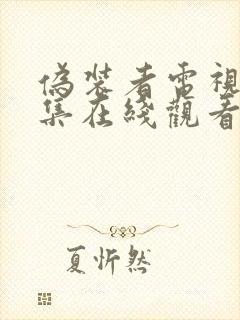 偽裝者電視
集在綫觀看
夏忻然